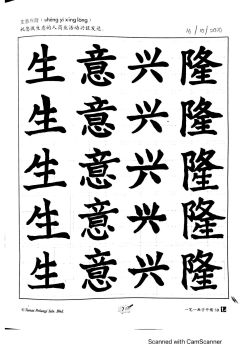 生意兴隆：shēng yì xīng lóng：
祝愿做生意的人商业活动兴旺发达。
15/10/2020
生意兴隆
生意兴隆
生意兴隆
生意兴隆
生意兴隆
© Sasbadi Sdn. Bhd.
Scanned with CamScanner